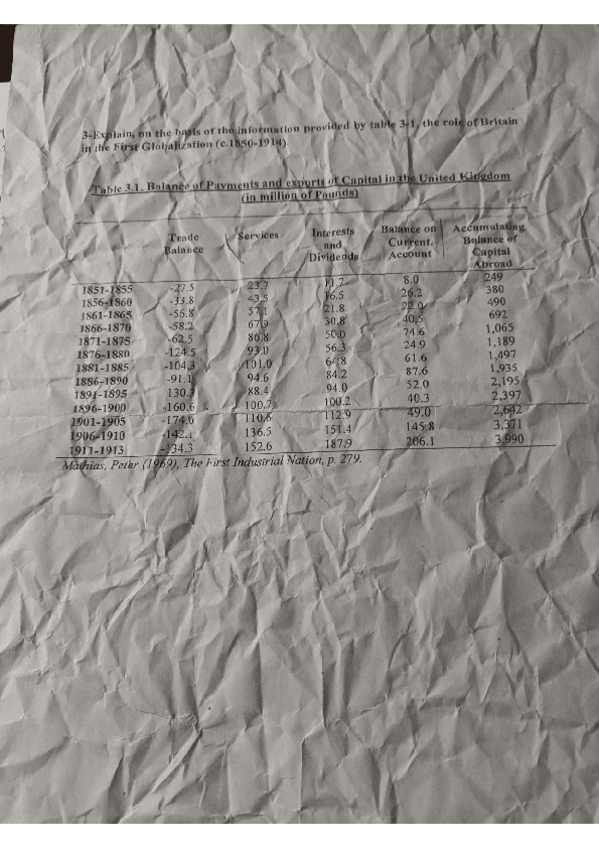 3-Explain, on the basis of the information provided by table 3-1, the role of Britain
in the First Globalization (c.1850-1914).
Table 3.1. Balance of Payments and exports of Capital in the United Kingdom
(in million of Pounds)
Trade Balance Services Interests and Dividends Balance on Current Account Accumulating Balance of Capital Abroad
1851-1855 -27.5 23.7 11.7 8.0 249
1856-1860 -33.8 43.5 16.5 26.2 380
1861-1865 -56.8 57.1 21.8 22.0 490
1866-1870 -58.2 67.9 30.8 40.5 692
1871-1875 -62.5 86.8 50.0 74.6 1,065
1876-1880 -124.5 93.0 56.3 24.9 1,189
1881-1885 -104.3 101.0 64.8 61.6 1,497
1886-1890 -91.1 94.6 84.2 87.6 1,935
1891-1895 130.3 88.4 94.0 52.0 2,195
1896-1900 -160.6 100.7 100.2 40.3 2,397
1901-1905 -174.6 110.6 112.9 49.0 2,642
1906-1910 -142.1 136.5 151.4 145.8 3,371
1911-1913 -134.3 152.6 187.9 206.1 3,990
Mathias, Peter (1969), The First Industrial Nation, p. 279.